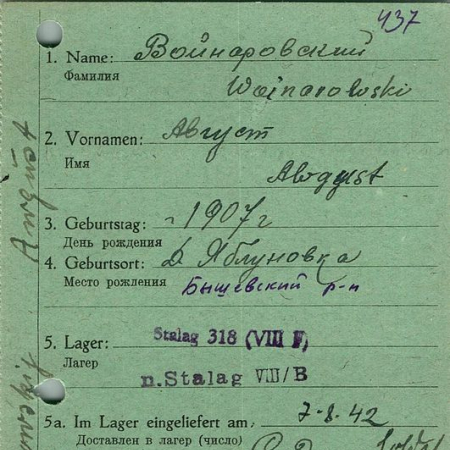 437
1. Name: Войнаровский
Фамилия
Woinarowski
2. Vornamen: Август
Имя
Awgust
3. Geburtstag: 1907 г
День рождения
4. Geburtsort: д Яблуновка
Место рождения Бышевский р-н
5. Lager: Stalag 318 (VIII F)
Лагерь
n. Stalag VIII/B
5a. Im Lager eingeliefert am, 7-8.42
Доставлен в лагерь (число)